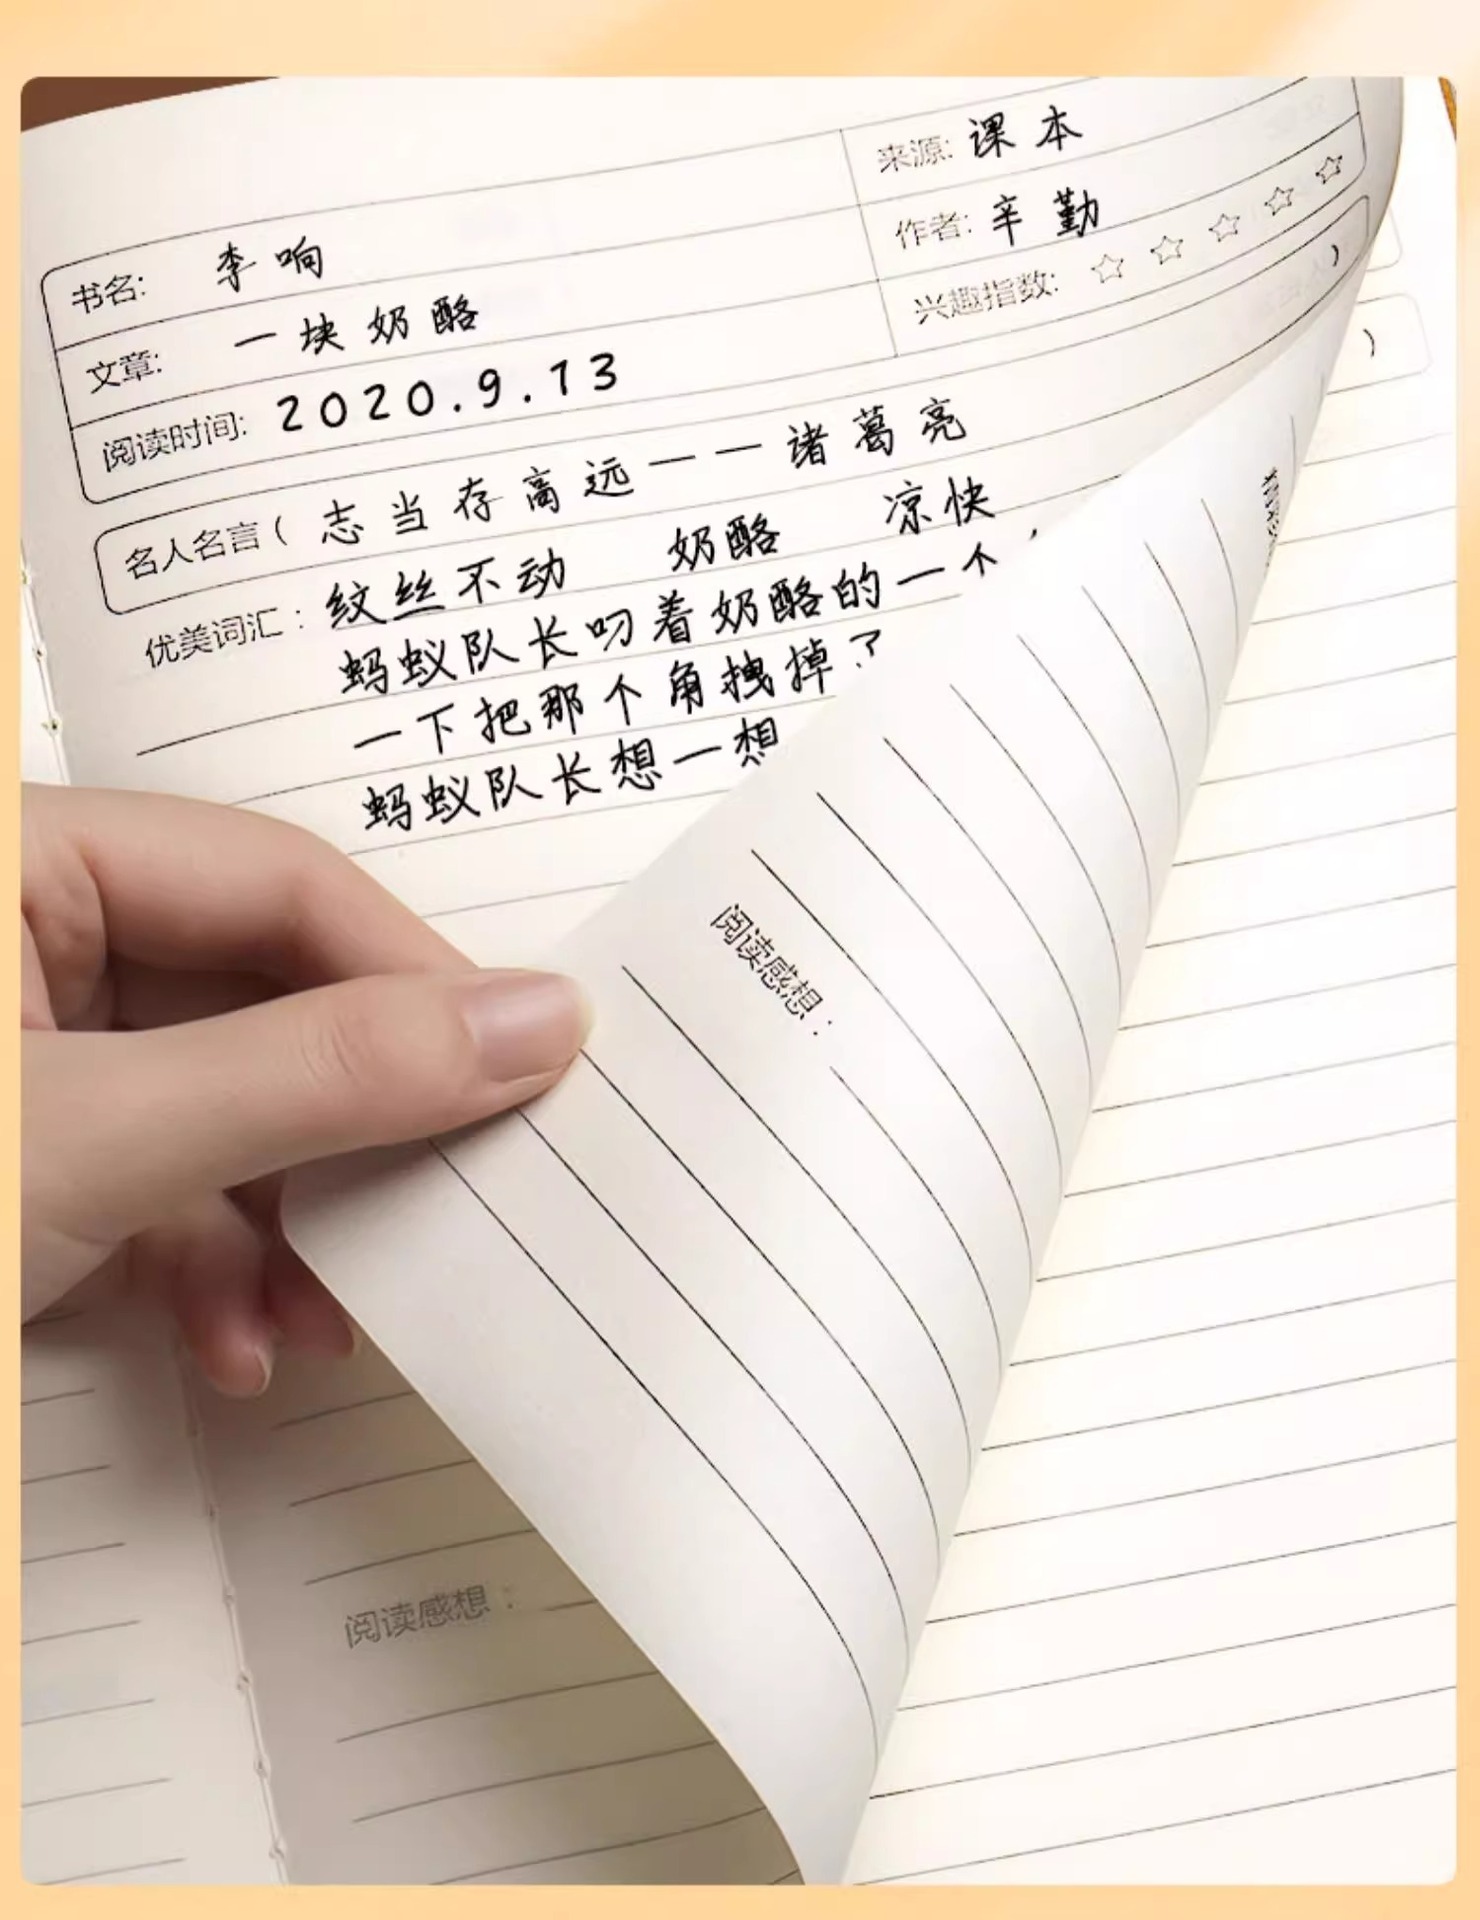 来源: 课本
书名: 李响
作者: 辛勤
文章: 一块奶酪
兴趣指数: ☆ ☆ ☆ ☆ ☆
阅读时间: 2020.9.13
名人名言( 志当存高远——诸葛亮 )
)
优美词汇: 纹丝不动 奶酪 凉快
蚂蚁队长叼着奶酪的一个
一下把那个角拽掉
蚂蚁队长想一想
阅读感想:
阅读感想: